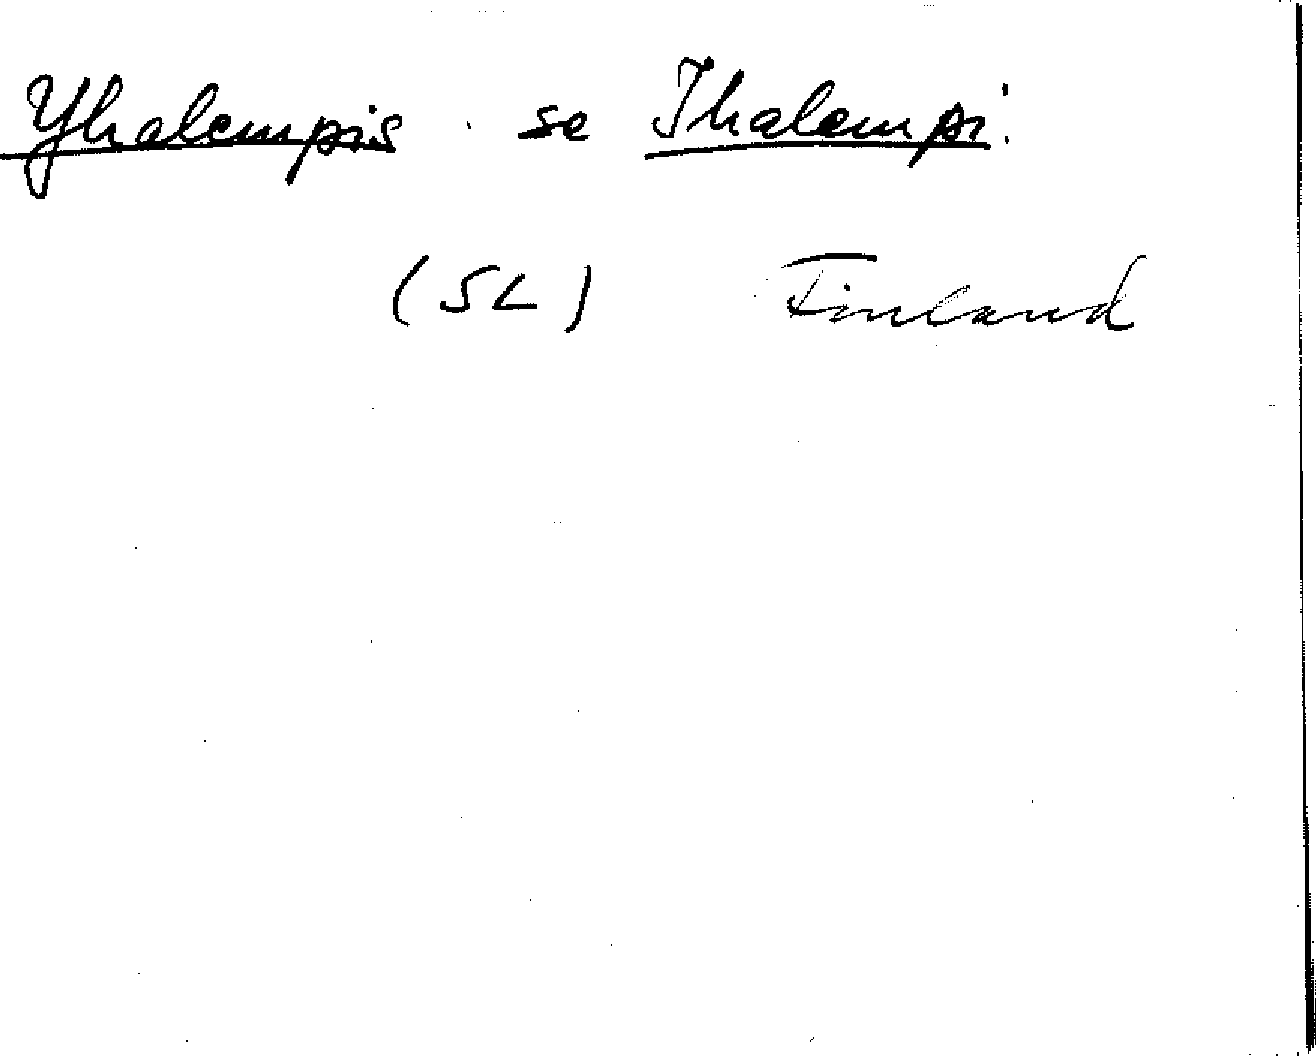 Yhalempis se Ihalempi.
(SL) Finland